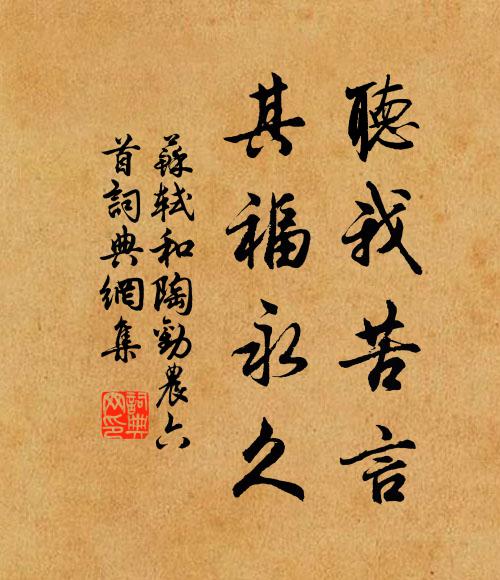 聽我苦言
其福永久
蘇軾和陶勸農六
首詞典網集
詞典
网印